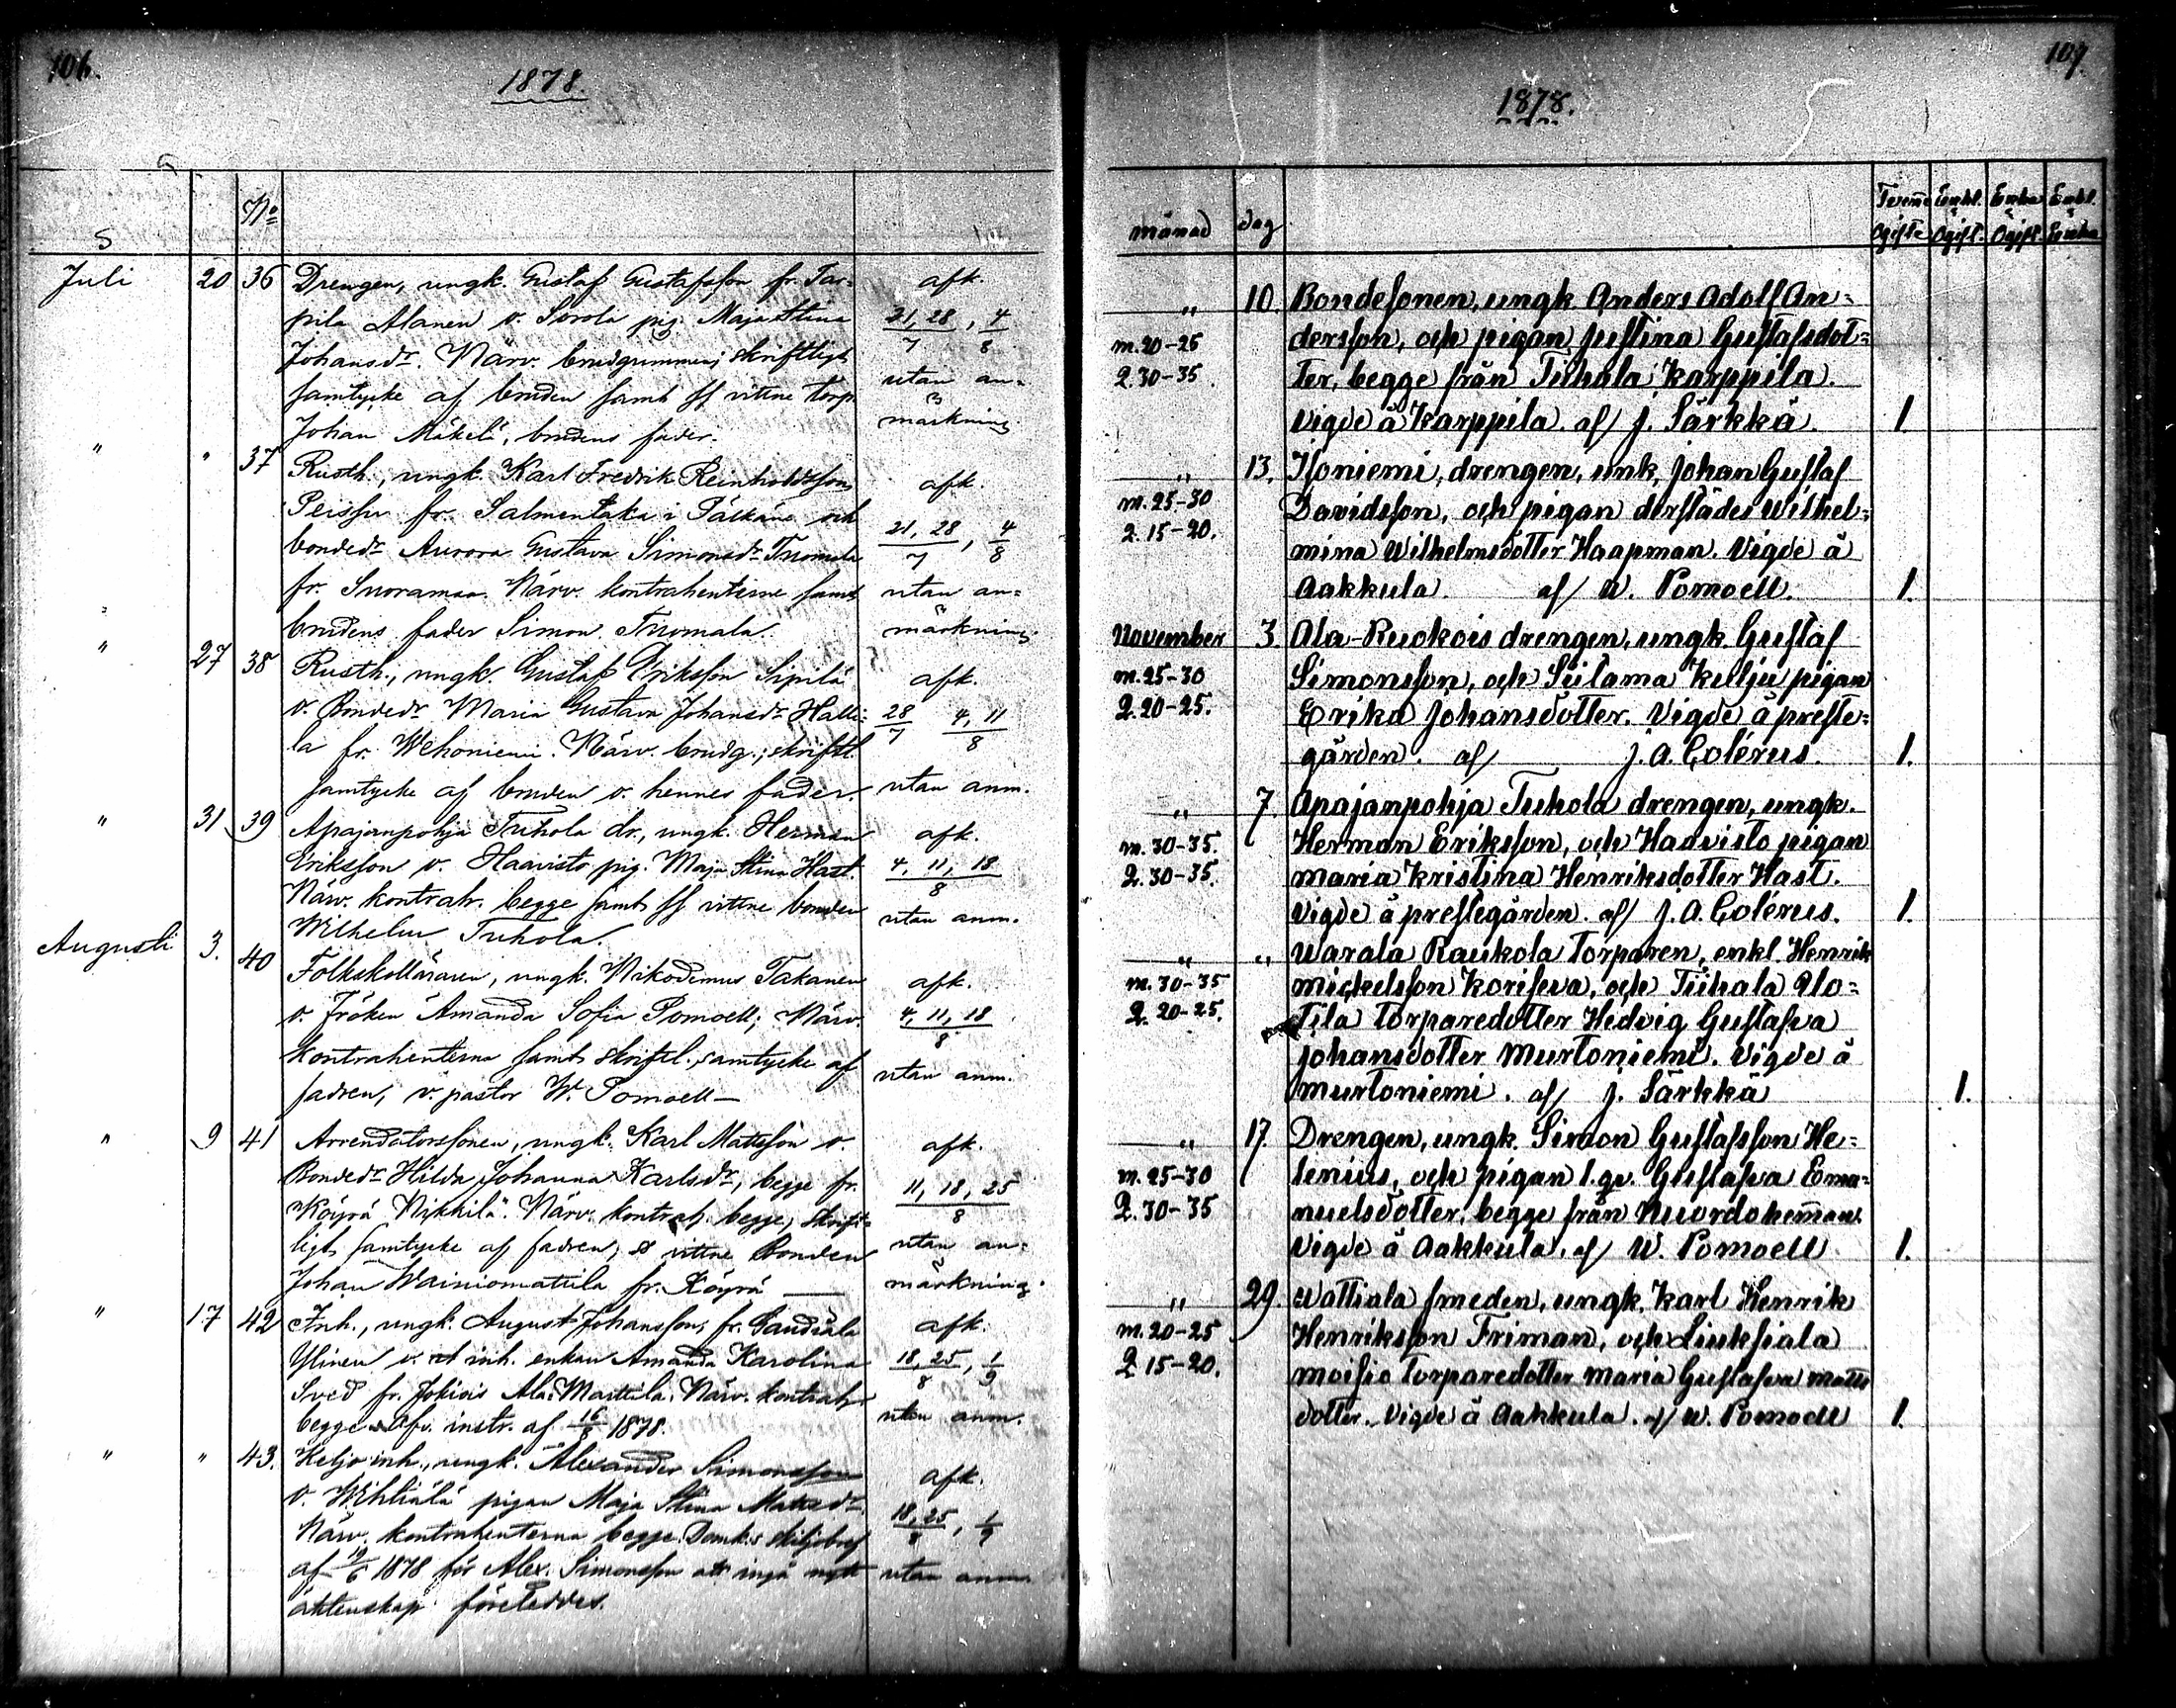 106.
1878.
No
Juli 20 36 Drengen, ungk. Gustaf Gustafsson fr. Tar= afk.
pila Alanen o. Sorola pig. Maja Stina 21, 28/7, 4/8
Johansdr. Närv. brudgummen; skriftligt
samtycke af bruden samt ss vittne torp. utan an=
Johan Mäkelä, brudens fader. märkning.
" " 37 Rusth., ungk. Karl Fredrik Reinholdsson afk.
Peissu fr. Salmentaka i Pälkäne och
bondedr Aurora Gustava Simonsdr Tuomala 21, 28/7, 4/8
fr. Suoramaa. Närv. kontrahenterne samt utan an=
brudens fader Simon Tuomala. märkning.
" 27 38 Rusth., ungk. Gustaf Eriksson Sipilä afk.
o. Bondedr Maria Gustava Johansdr Halli= 28/7 4, 11/8
la fr. Wehoniemi. Närv. brudg.; skriftl.
samtycke af bruden o. hennes fader. utan anm.
" 31 39 Apajanpohja Tuhola dr., ungk. Herman afk.
Eriksson o. Haavisto pig. Maja Stina Hast. 4, 11, 18/8
Närv. kontrah. begge samt ss vittne bonden utan anm.
Wilhelm Tuhola.
Augusti 3. 40 Folkskolläraren, ungk. Nikodemus Takanen afk.
o. Fröken Amanda Sofia Pomoell; Närv. 4, 11, 18/8
kontrahenterna samt skriftl. samtycke af utan anm.
fadren, v. pastor W. Pomoell—
" 9 41 Arrendatorssonen, ungk. Karl Mattsson o. afk.
Bondedr Hilda Johanna Karlsdr, begge fr. 11, 18, 25/8
Köyrä Nikkilä. Närv. kontrah. begge, skrift=
ligt samtycke af fadren, ss vittne Bonden utan an=
Johan Wainiomattila fr. Köyrä — märkning.
" 17 42 Inh., ungk. August Johansson, fr. Sandiala afk.
Ylinen o. inh. enkan Amanda Karolina 18, 25/8, 1/9
Sved fr. Jokiois Ala-Marttila. Närv. kontrah.
begge. Afv. instr. af 16/8 1878. utan anm.
" " 43. Keljo inh., ungk. Alexander Simonsson afk.
o. Wihtiälä pigan Maja Stina Mattsdr. 18, 25/8, 1/9
Närv. kontrahenterna begge. Domk:s skiljobref
af 19/6 1878 för Alex. Simonsson att ingå nytt utan anm.
äktenskap företeddes.
107.
1878.
månad dag Ogifte Enkl. Ogift. Enka Ogift. Enkl. Enka
" 10. Bondesonen, ungk. Anders Adolf An=
m. 20-25 dersson, och pigan Justina Gustafsdot=
q. 30-35. ter, begge från Tiihala Karppila.
Vigde å Karppila. af J. Särkkä. 1.
" 13. Isoniemi, drengen, unk, Johan Gustaf
m. 25-30 Davidsson, och pigan derstädes Wilhel=
q. 15-20. mina Wilhelmsdotter Haapman. Vigde å
Aakkula. af W. Pomoell. 1.
November 3. Ala-Ruokois drengen, ungk. Gustaf
m. 25-30 Simonsson, och Siitama Kellju pigan
q. 20-25. Erika Johansdotter. Vigde å preste=
gården. af J. A. Colérus. 1.
" 7. Apajanpohja Tuhola drengen, ungk.
m. 30-35. Herman Eriksson, och Haavisto pigan
q. 30-35. Maria Kristina Henriksdotter Hast.
Vigde å prestegården. af J. A. Colérus. 1.
" " Warala Raukola Torparen, enkl. Henrik
m. 30-35 Mickelsson Koriseva, och Tiihala Alo=
q. 20-25. Tila Torparedotter Hedvig Gustafva
Johansdotter Murtoniemi. Vigde å
Murtoniemi. af J. Särkkä 1.
" 17. Drengen, ungk. Simon Gustafsson He=
m. 25-30 lenius, och pigan l. qv. Gustafva Ema=
q. 30-35 nuelsdotter, begge från Nuordoheman.
Vigde å Aakkula. af W. Pomoell 1.
" 29. Wattiala smeden, ungk. Karl Henrik
m. 20-25 Henriksson Friman, och Liuksiala
q. 15-20. Moisio Torparedotter Maria Gustafva Matts
dotter. Vigde å Aakkula. af W. Pomoell 1.